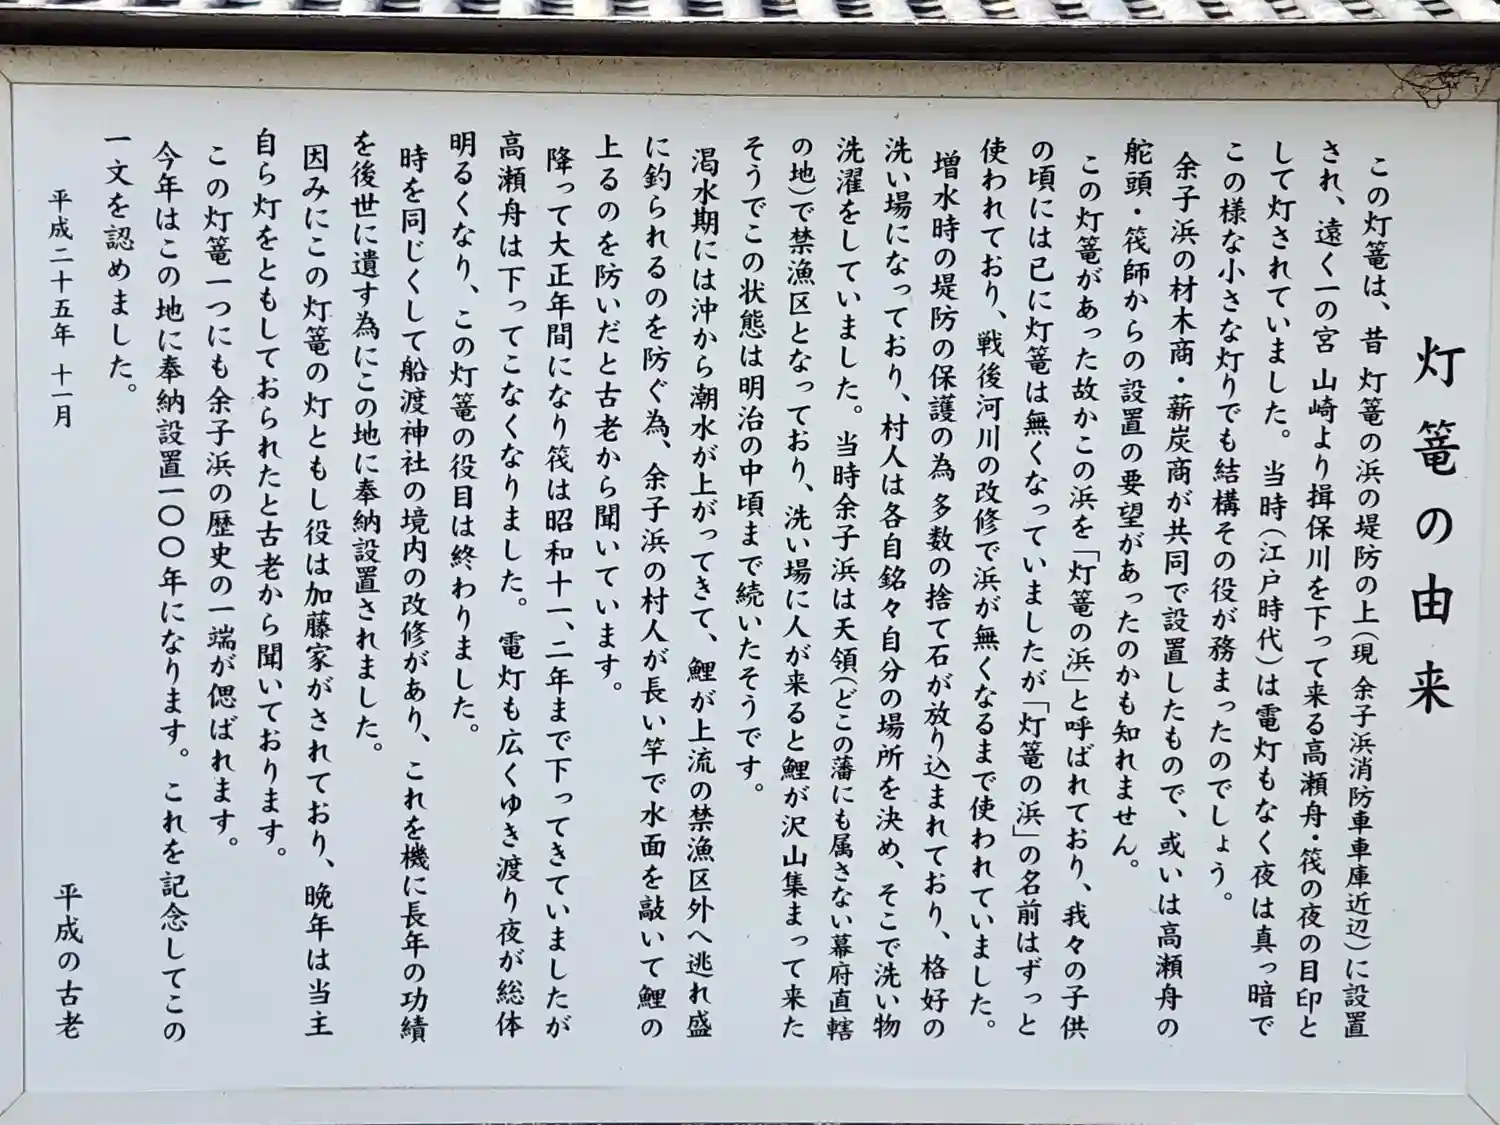 灯篭の由来
この灯篭は、昔 灯篭の浜の堤防の上(現 余子浜消防車車庫近辺)に設置
され、遠く一の宮 山崎より揖保川を下って来る高瀬舟・筏の夜の目印と
して灯されていました。当時(江戸時代)は電灯もなく夜は真っ暗で
この様な小さな灯りでも結構その役が務まったのでしょう。
余子浜の材木商・薪炭商が共同で設置したもので、或いは高瀬舟の
舵頭・筏師からの設置の要望があったのかも知れません。
この灯篭があった故かこの浜を「灯篭の浜」と呼ばれており、我々の子供
の頃には已に灯篭は無くなっていましたが「灯篭の浜」の名前はずっと
使われており、戦後河川の改修で浜が無くなるまで使われていました。
増水時の堤防の保護の為 多数の捨て石が放り込まれており、格好の
洗い場になっており、村人は各自銘々自分の場所を決め、そこで洗い物
洗濯をしていました。当時余子浜は天領(どこの藩にも属さない幕府直轄
の地)で禁漁区となっており、洗い場に人が来ると鯉が沢山集まって来た
そうでこの状態は明治の中頃まで続いたそうです。
渇水期には沖から潮水が上がってきて、鯉が上流の禁漁区外へ逃れ盛
に釣られるのを防ぐ為、余子浜の村人が長い竿で水面を敲いて鯉の
上るのを防いだと古老から聞いています。
降って大正年間になり筏は昭和十一、二年まで下ってきていましたが
高瀬舟は下ってこなくなりました。電灯も広くゆき渡り夜が総体
明るくなり、この灯篭の役目は終わりました。
時を同じくして船渡神社の境内の改修があり、これを機に長年の功績
を後世に遺す為にこの地に奉納設置されました。
因みにこの灯篭の灯ともし役は加藤家がされており、晩年は当主
自ら灯をともしておられたと古老から聞いております。
この灯篭一つにも余子浜の歴史の一端が偲ばれます。
今年はこの地に奉納設置一〇〇年になります。これを記念してこの
一文を認めました。
平成二十五年 十一月
平成の古老